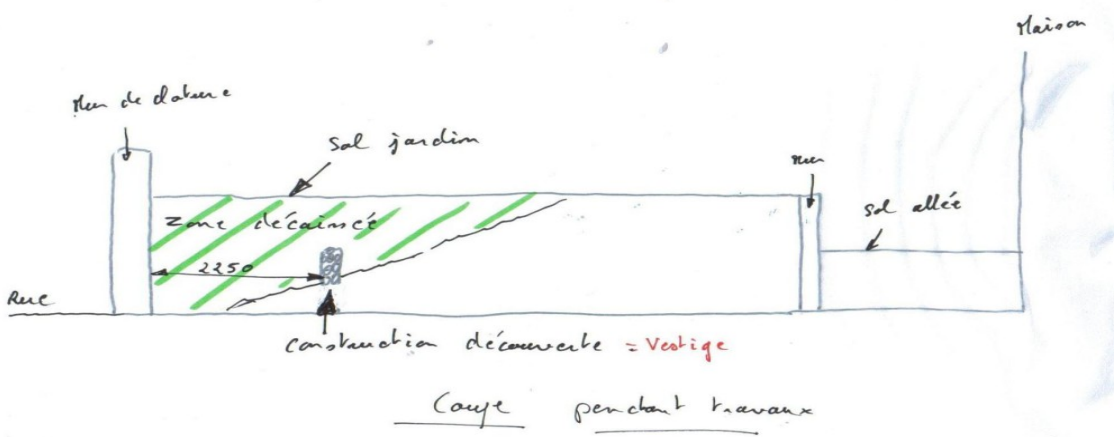 Maison
Mur de cloture
Sol jardin
mur
sol allée
Zone décaissée
2250
Rue
Construction découverte = Vestige
Coupe pendant travaux